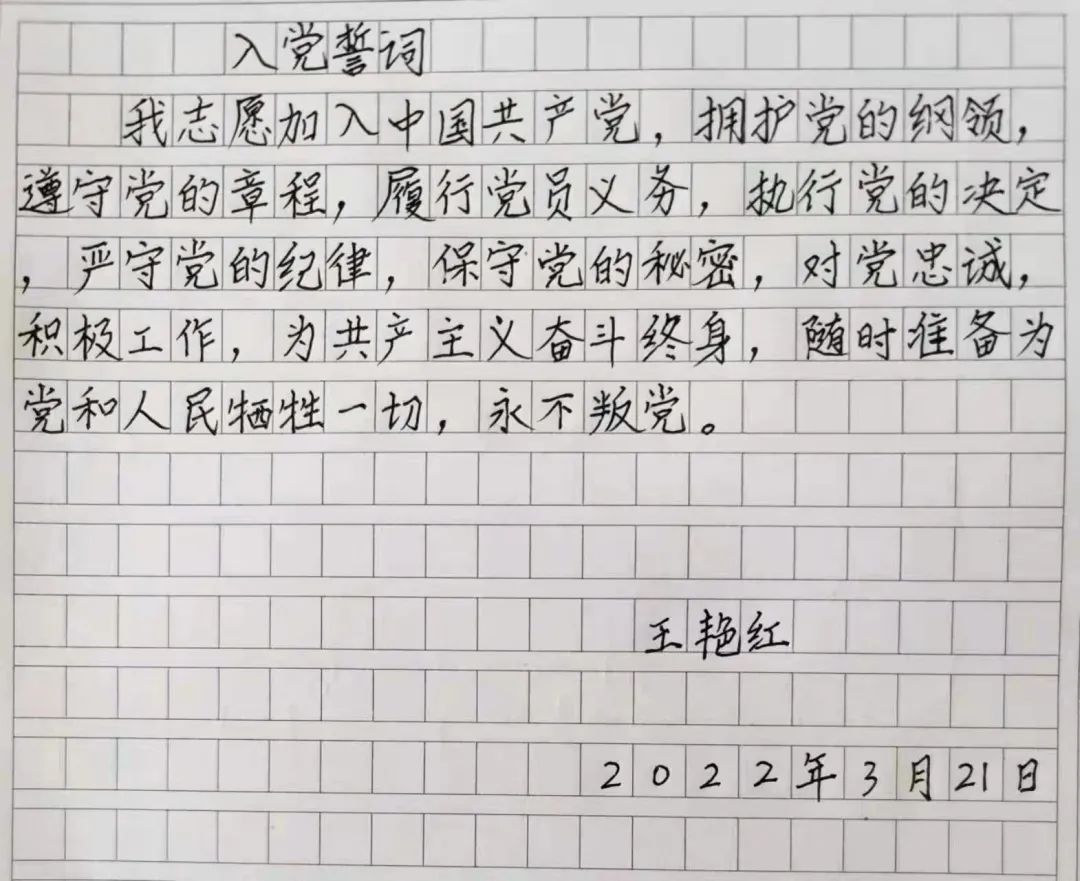 入党誓词
我志愿加入中国共产党，拥护党的纲领，
遵守党的章程，履行党员义务，执行党的决定
，严守党的纪律，保守党的秘密，对党忠诚，
积极工作，为共产主义奋斗终身，随时准备为
党和人民牺牲一切，永不叛党。
王艳红
2022年3月21日